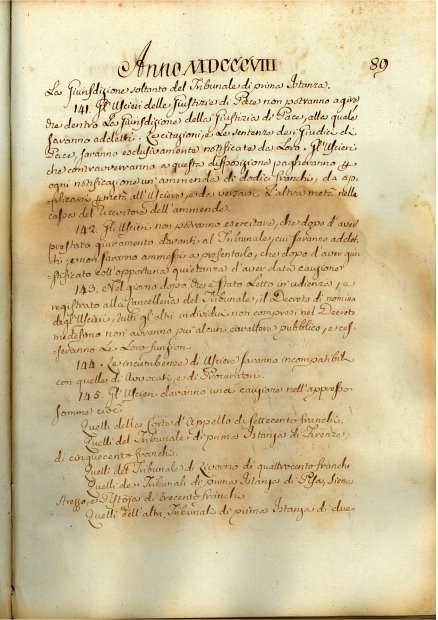 Anno MDCCCVIII 89
La Giurisdizione soltanto del Tribunale di prima Istanza.
141. Gl'Uscieri delle Giustizie di Pace non potranno agire
che dentro La Giurisdizione della Giustizia di Pace, alla quale
saranno addetti. Le citazioni, e Le sentenze de i Giudici di
Pace, saranno esclusivamente notificate da Loro. Gl'Uscieri
che contravverranno a questa disposizione pagheranno p
ogni notificazione un'ammenda di dodici franchi, da ap-
plicarsi p metà all'Usciere, e da versarsi L'altra metà nelle
casse del Ricevitore dell'ammende.
142. Gl'Uscieri non potranno esercitare, che dopo d'aver
prestato giuramento davanti al Tribunale, cui saranno addet-
ti; e non saranno ammessi a prestarlo, che dopo d'aver giu-
stificato coll'opportuna quietanza d'aver data cauzione
143. Nel giorno dopo che è stato Letto in udienza, e
registrato alla Cancelleria del Tribunale, il Decreto di nomina
degl'Uscieri, tutti gl'altri individui non compresi nel Decreto
medesimo non avranno più alcun carattere pubblico, e ces-
seranno Le Loro funzioni.
144. Le incumbenze di Usciere saranno incompatibili
con quelle di Avvocati, e di Procuratori.
145. Gl'Uscieri daranno una cauzione nell'appresso
somme cioè
Quelli della Corte d'Appello di settecento franchi.
Quelli del Tribunale di prima Istanza di Firenze,
di cinquecento franchi.
Quelli del Tribunale di Livorno di quattrocento franchi
Quelli de i Tribunali di prima Istanza di Pisa, Siena
Arezzo, e Pistoja di trecento franchi
Quelli dell'altri Tribunali di prima Istanza di due-